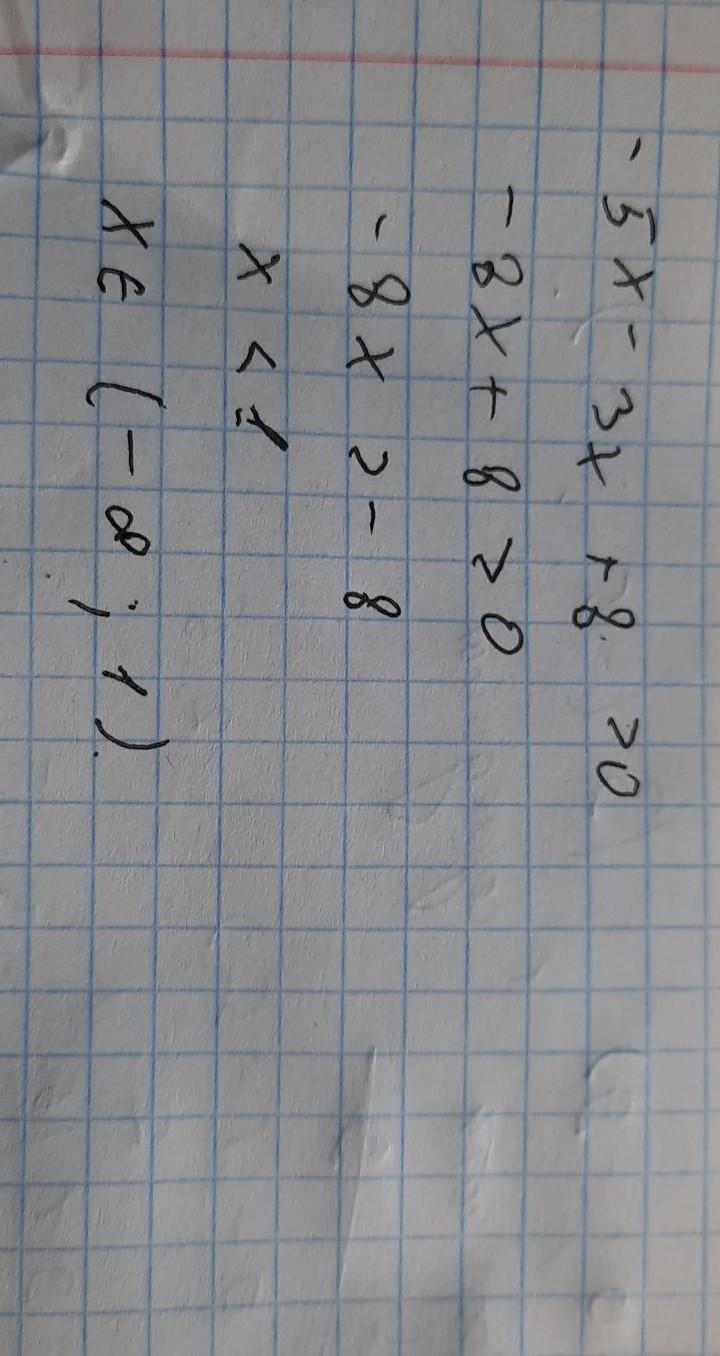 - 5x - 3x + 8 > 0
- 8x + 8 > 0
- 8x > - 8
x < 1
x ∈ (- ∞ ; 1)